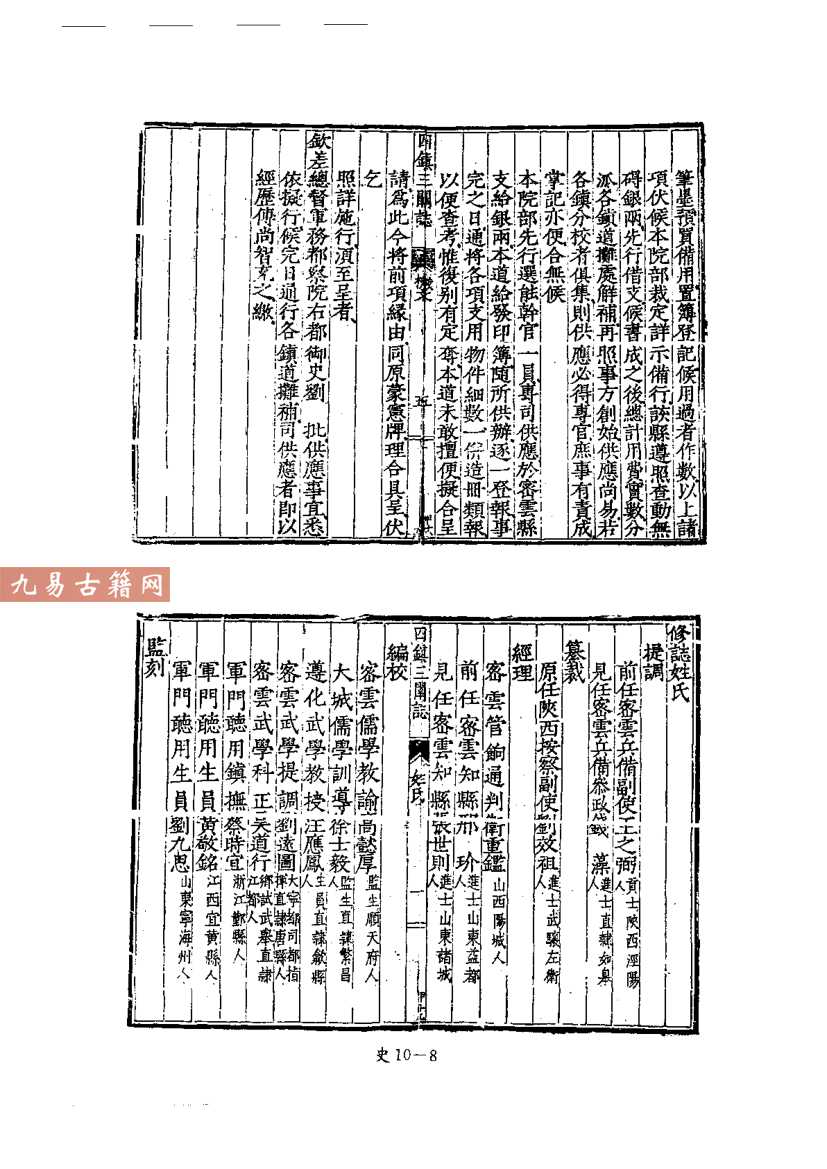 筆墨預買備用置簿登記候用過者作數以上諸
項伏候本院部裁定詳示備行該縣遵照查動無
碍銀兩先行借支候書成之後總計用費實數分
派各鎮道攤處解補再照事方創始供應尚易若
各鎮分校者俱集則供應必得專官庶事有責成
掌記亦便合無候
本院部先行選能幹官一員專司供應於密雲縣
支給銀兩本道給發印簿隨所供辦逐一登報事
完之日通將各項支用物件細數一倂造冊類報
以便查考惟復別有定奪本道未敢擅便擬合呈
四鎮三關誌 檄文 五
請爲此今將前項緣由同原蒙憲牌理合具呈伏
乞
照詳施行須至呈者
欽差總督軍務都察院右都御史劉 批供應事宜悉
依擬行候完日通行各鎮道攤補司供應者即以
經歷傅尚智充之繳
九易古籍网
修誌姓氏
提調
前任密雲兵備副使王之弼貢士陝西涇陽人
見任密雲兵備叅政錢 藻進士直隸如皐人
纂裁
原任陝西按察副使劉效祖進士武驤左衛人
經理
密雲管餉通判衛重鑑山西陽城人
前任密雲知縣邢 玠進士山東益都人
見任密雲知縣張世則進士山東諸城人
四鎮三關誌 姓氏 一
編校
密雲儒學教諭高懿厚監生順天府人
大城儒學訓導徐士毅監生直隸繁昌人
遵化武學教授汪應鳳生員直隸歙縣人
密雲武學提調劉遠圖大寧都司都指揮直隸唐縣人
密雲武學科正吴道行鄉試武舉直隸江都人
軍門聽用鎮撫蔡時宜浙江鄞縣人
軍門聽用生員黃敬銘江西宜黃縣人
軍門聽用生員劉九思山東寧海州人
監刻
史10－8